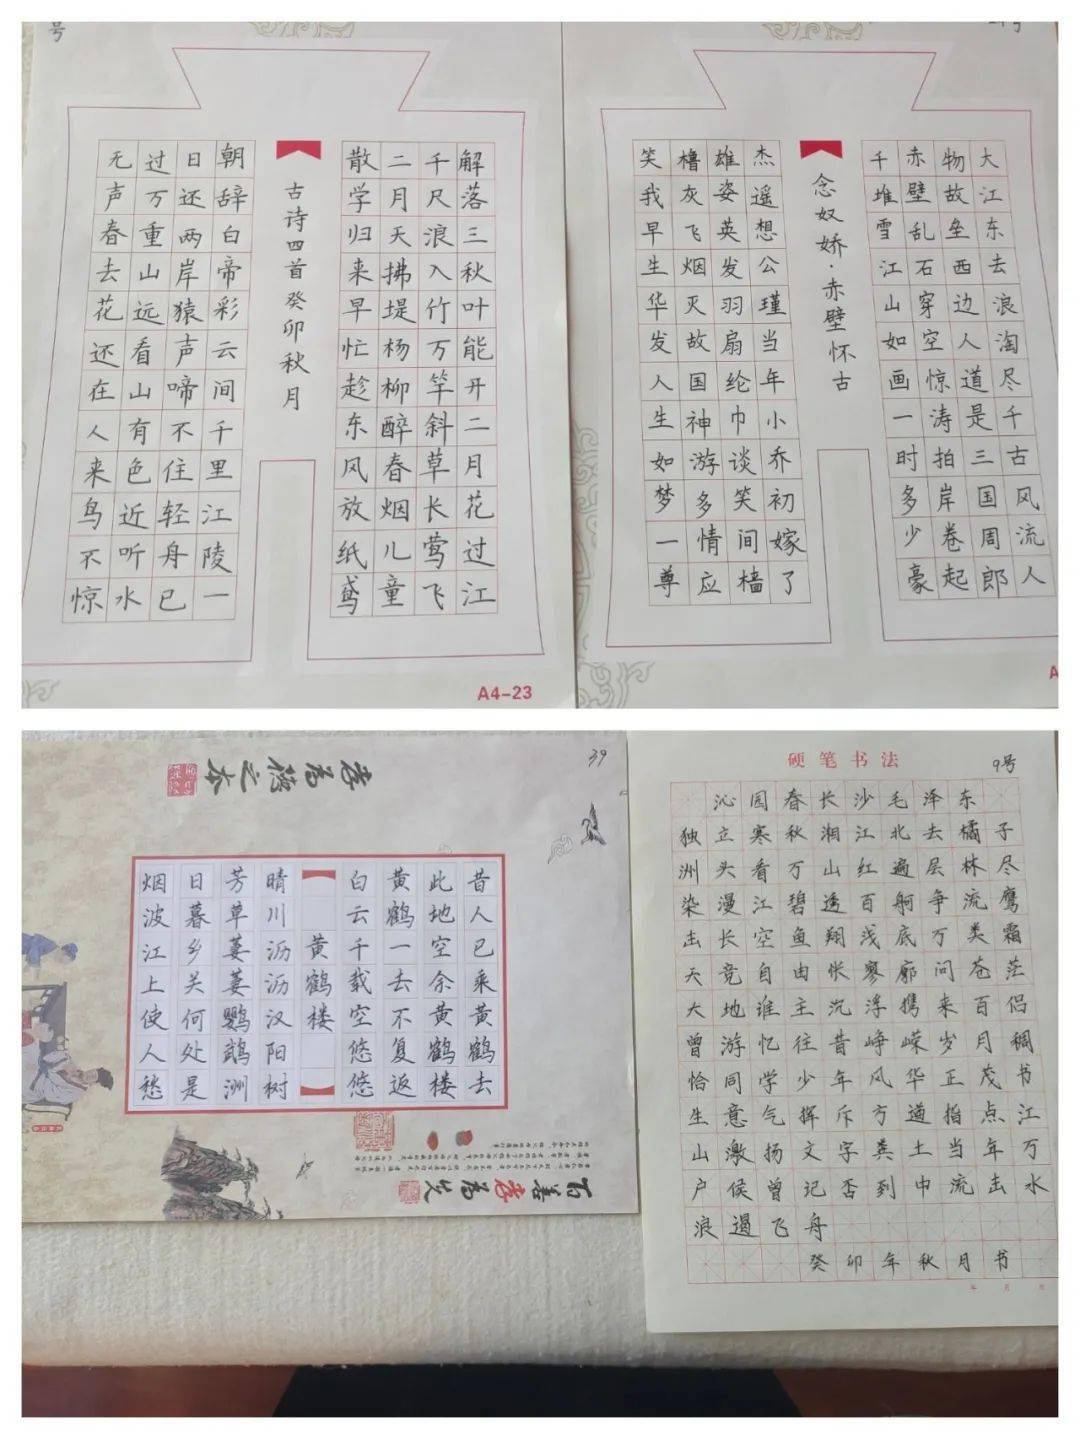 号
解落三秋叶能开二月花过江
千尺浪入竹万竿斜草长莺飞
二月天拂堤杨柳醉春烟儿童
散学归来早忙趁东风放纸鸢
古诗四首癸卯秋月
朝辞白帝彩云间千里江陵一
日还两岸猿声啼不住轻舟已
过万重山远看山有色近听水
无声春去花还在人来鸟不惊
A4-23
大江东去浪淘尽千古风流人
物故垒西边人道是三国周郎
赤壁乱石穿空惊涛拍岸卷起
千堆雪江山如画一时多少豪
念奴娇·赤壁怀古
杰遥想公瑾当年小乔初嫁了
雄姿英发羽扇纶巾谈笑间樯
橹灰飞烟灭故国神游多情应
笑我早生华发人生如梦一尊
孝为德之本
39
昔人已乘黄鹤去
此地空余黄鹤楼
黄鹤一去不复返
白云千载空悠悠
黄鹤楼
晴川沥沥汉阳树
芳草萋萋鹦鹉洲
日暮乡关何处是
烟波江上使人愁
百善孝为先
硬笔书法
9号
沁园春长沙毛泽东
独立寒秋湘江北去橘子
洲头看万山红遍层林尽
染漫江碧透百舸争流鹰
击长空鱼翔浅底万类霜
天竞自由怅寥廓问苍茫
大地谁主沉浮携来百侣
曾游忆往昔峥嵘岁月稠
恰同学少年风华正茂书
生意气挥斥方遒指点江
山激扬文字粪土当年万
户侯曾记否到中流击水
浪遏飞舟
癸卯年秋月书
年 月